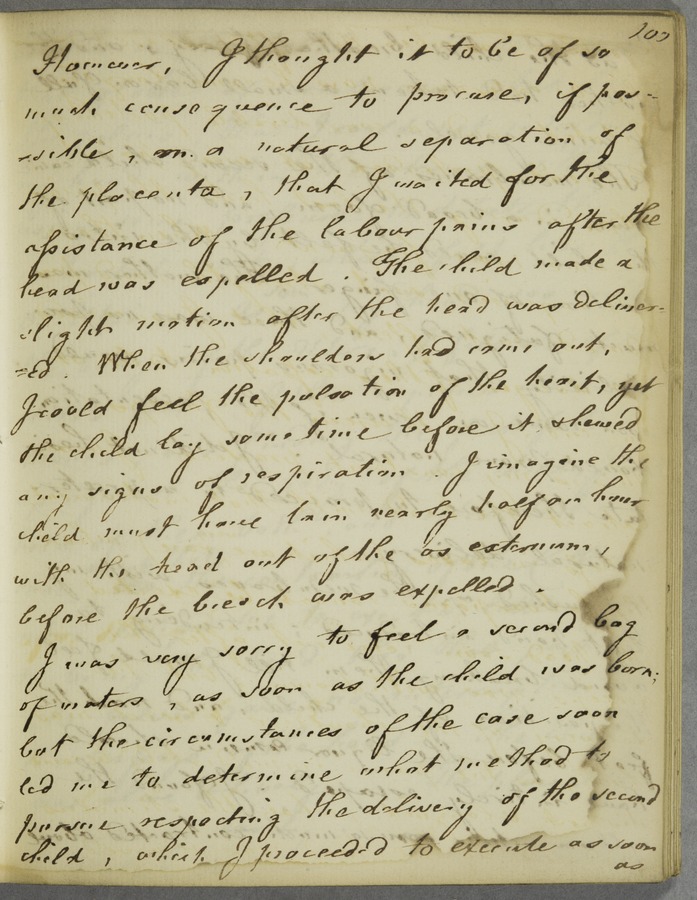 However, I thought it to be of so
much consequence to procure, if pos-
-sible, a natural separation of
the placenta, that I waited for the
assistance of the labour pains after the
head was expelled. The child made a
slight motion after the head was deliver-
=ed. When the shoulders had come out,
I could feel the pulsation of the heart, yet
the child lay some time before it shewed
any signs of respiration. I imagine the
child must have lain nearly half an hour
with the head out of the os externum,
before the breech was expelled.
I was very sorry to feel a second bag
of waters, as soon as the child was born;
but the circumstances of the case soon
led me to determine what method to
pursue respecting the delivery of the second
child, which I proceeded to execute as soon
as